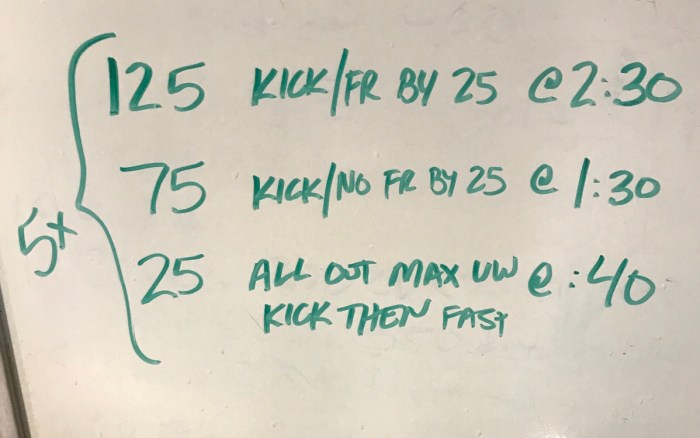 5x
125 KICK/FR BY 25 @ 2:30
75 KICK/NO FR BY 25 @ 1:30
25 ALL OUT MAX UW @ :40
KICK THEN FAST